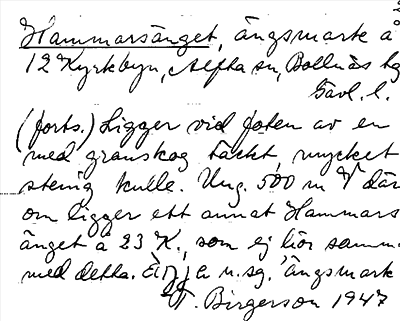 Hammarsänget, ängsmark å
12 Kyrkbyn, Alfta sn, Bollnäs tg
Gävl. l.
(forts.) Ligger vid foten av en
med granskog täckt, mycket
stenig kulle. Ung. 500 m V där
om ligger ett annat Hammars
änget å 23 K., som ej hör samm.
med detta. Ej n. sg. ängsmark
T. Birgerson 1947